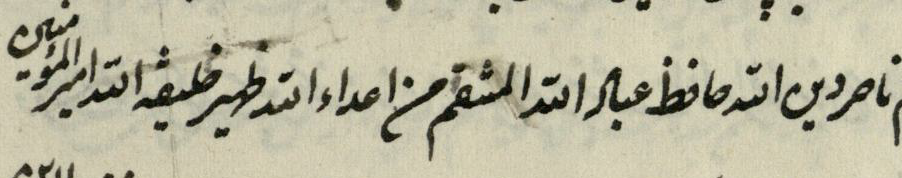 ناصر دین الله حافظ عباد الله المنتقم من اعداء الله ظهیر خلیفة الله امیر المؤمنین